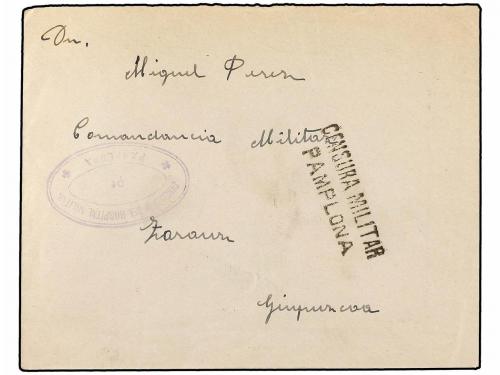 Dn.
Miguel Perez
Comandancia Militar
CENSURA MILITAR
PAMPLONA
HOSPITAL MILITAR
DE
PAMPLONA
Zarauz
Guipuzcoa